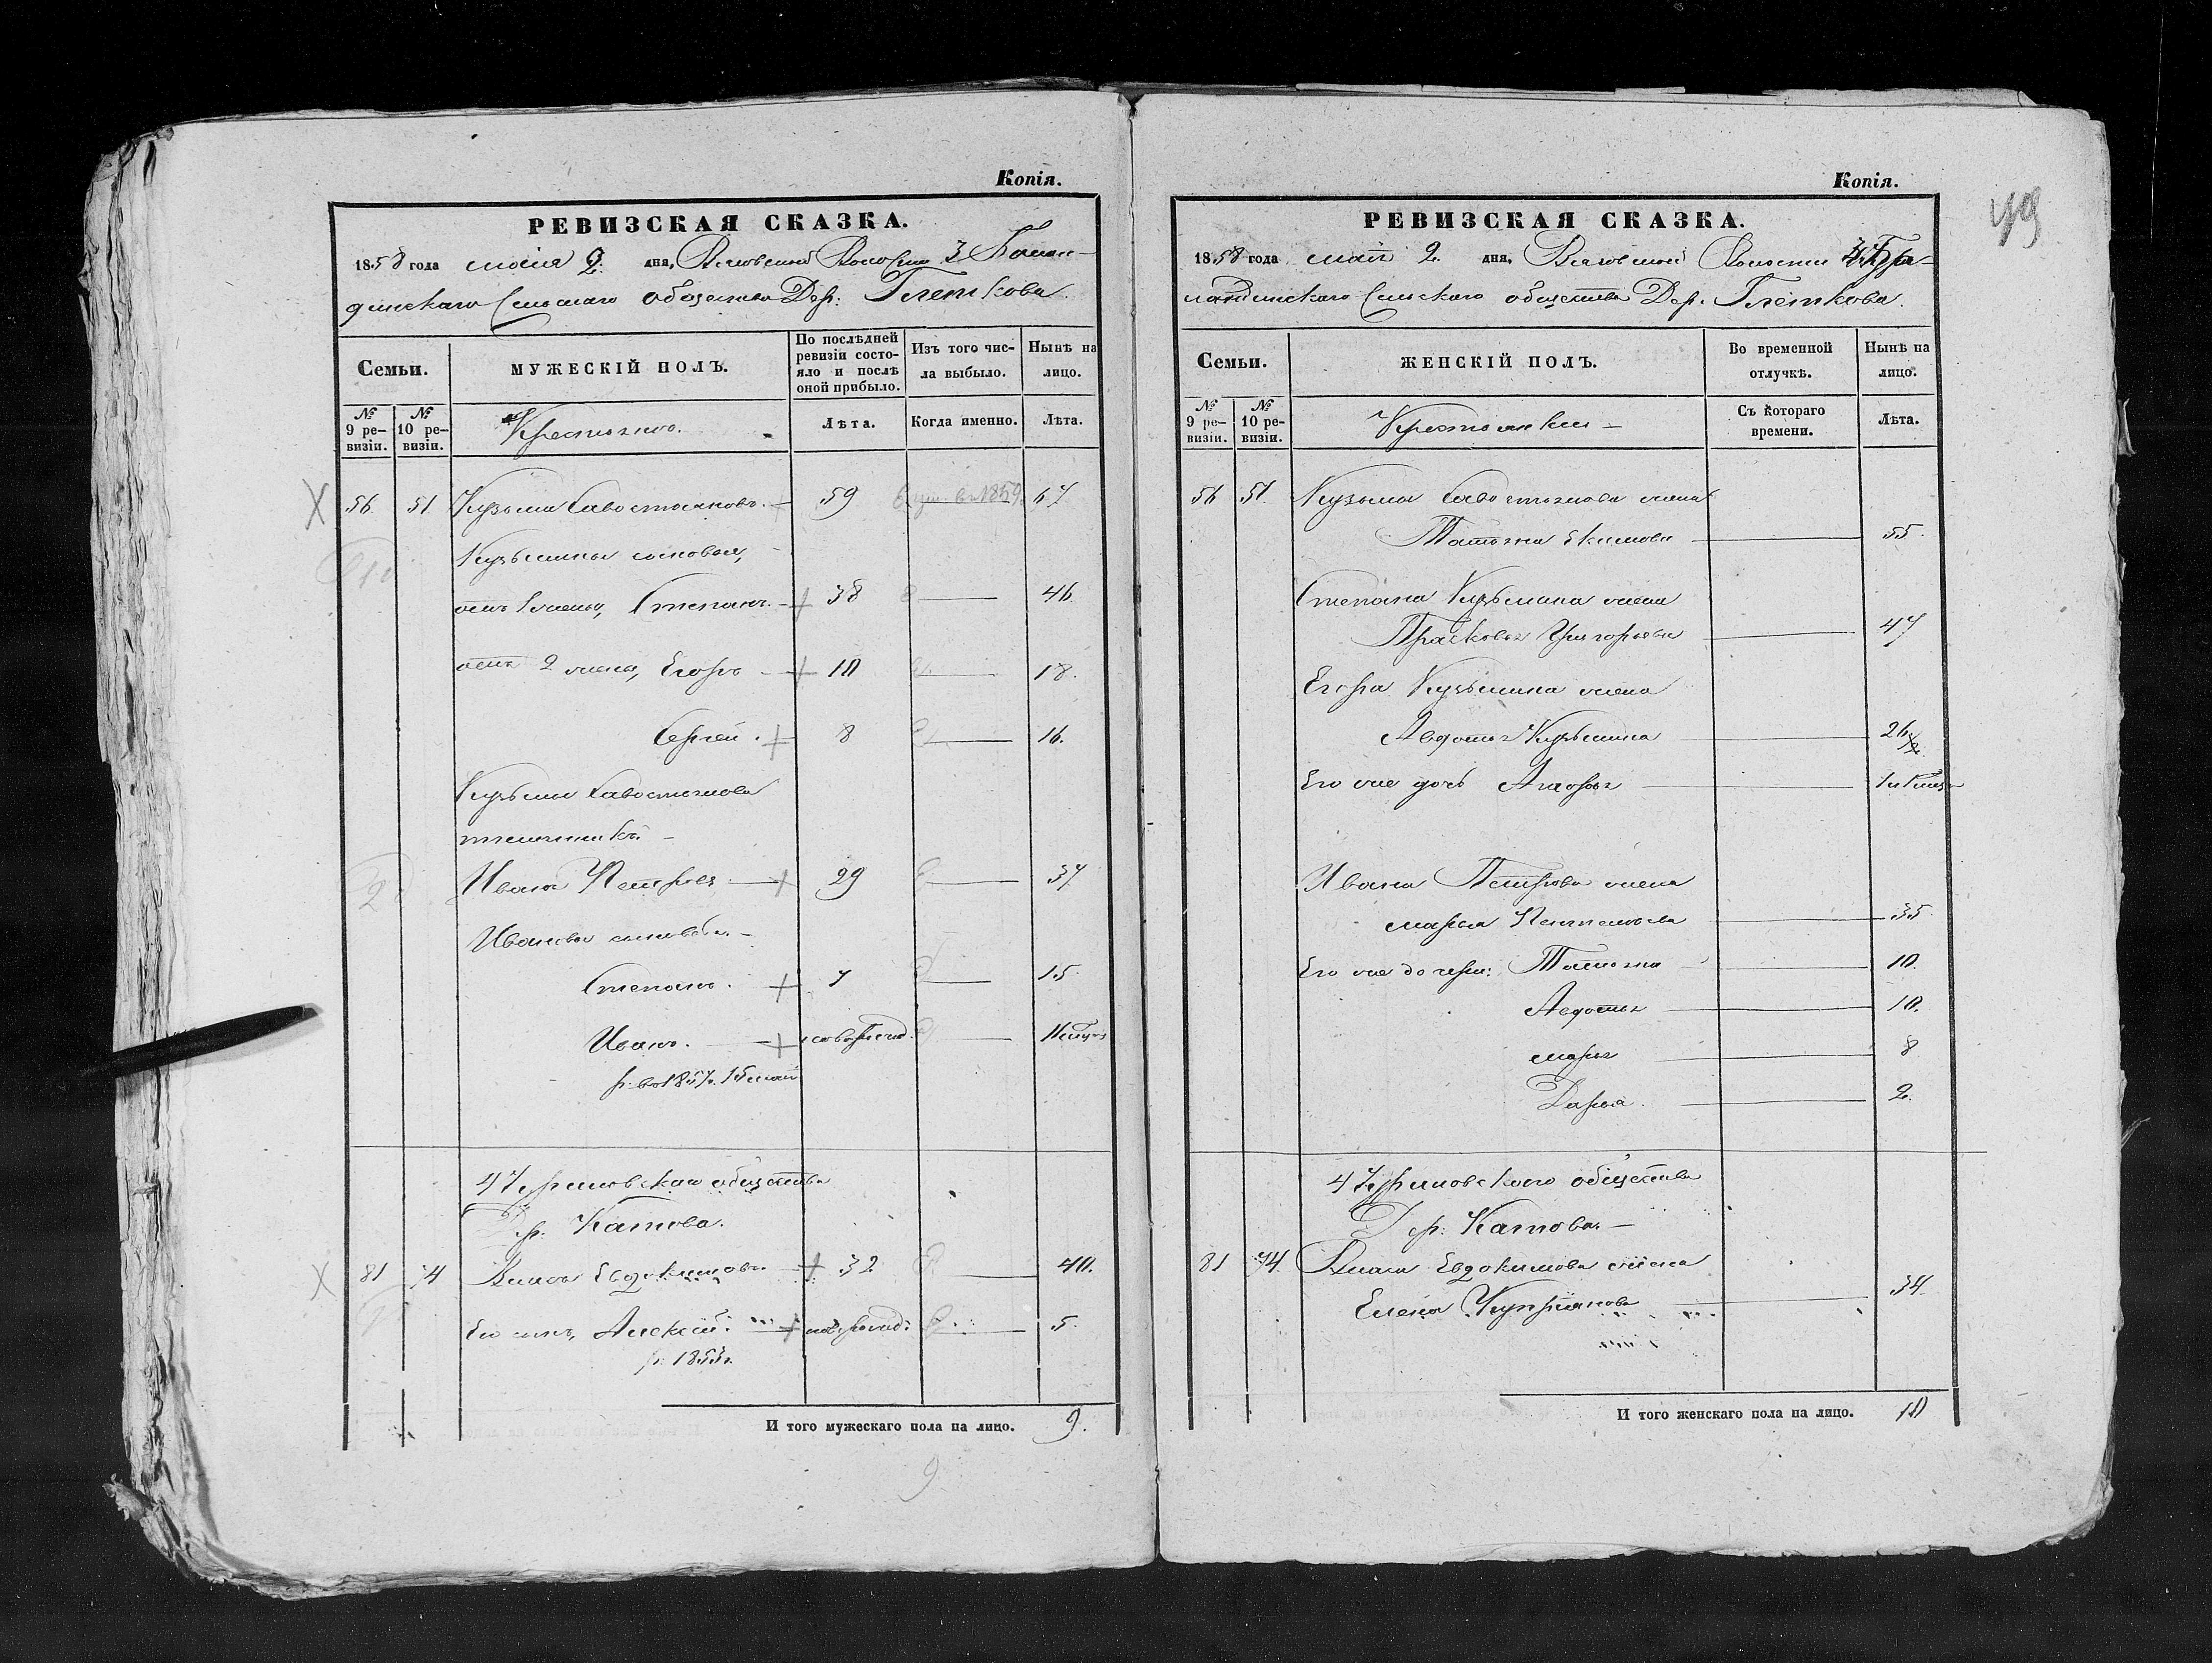 Копія.
РЕВИЗСКАЯ СКАЗКА.
1858 года маія 2 дня, Волости 3
Сельскаго общества Дер: Глеткова.
Семьи.
МУЖЕСКІЙ ПОЛЪ.
По послѣдней ревизіи состояло и послѣ оной прибыло.
Изъ того числа выбыло.
Нынѣ на лицо.
№ 9 ревизіи.
№ 10 ревизіи.
Крестьяне.
Лѣта.
Когда именно.
Лѣта.
56. 51 Кузьма Савостьяновъ. 59 67
Кузьмины сыновья,
отъ 1 жены, Степанъ. 38 46.
отъ 2 жены, Егоръ 10 18.
Сергей. 8 16.
Кузьмы Савостьянова
племянникъ.
Иванъ Петровъ 29 37
Ивановы сыновья.
Степанъ. 7 15.
Иванъ.
р. въ 1857. 15 маія
4 общества
Дер: Катова.
81 74 Евдокимовъ 32 40.
Его сынъ, Алексѣй. 5.
р. 1853г.
И того мужескаго пола на лицо. 9.
9
Копія.
49
РЕВИЗСКАЯ СКАЗКА.
1858 года маія 2. дня, Волости
Сельскаго общества Дер. Глеткова.
Семьи.
ЖЕНСКІЙ ПОЛЪ.
Во временной отлучкѣ.
Нынѣ на лицо.
№ 9 ревизіи.
№ 10 ревизіи.
Крестьянки
Съ котораго времени.
Лѣта.
56 51. Кузьмы Савостьянова жена
Татьяна Екимова 55.
Степана Кузьмина жена
Прасковья Григорьева 47
Егора Кузьмина жена
Авдотья Кузьмина
Его же дочь Агафья
Ивана Петрова жена
Марья 35.
Его же дочери: Татьяна 10.
Авдотья 10.
Марья 8
Дарья. 2.
4 общества
Дер: Катова.
81 74. Евдокимова жена
Елена Купріянова 34.
И того женскаго пола на лицо. 10